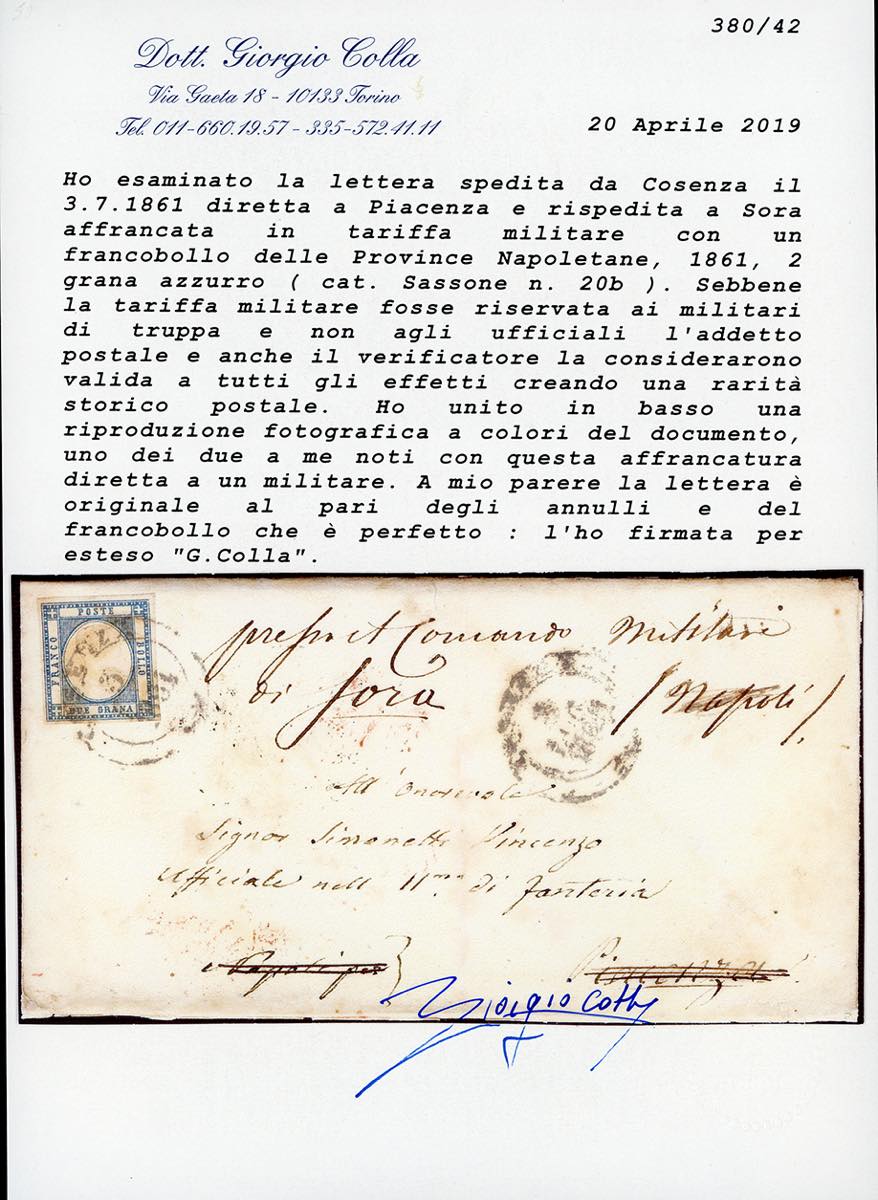 380/42
Dott. Giorgio Colla
Via Gaeta 18 - 10133 Torino
Tel. 011-660.19.57 - 335-572.41.11
20 Aprile 2019
Ho esaminato la lettera spedita da Cosenza il
3.7.1861 diretta a Piacenza e rispedita a Sora
affrancata in tariffa militare con un
francobollo delle Province Napoletane, 1861, 2
grana azzurro ( cat. Sassone n. 20b ). Sebbene
la tariffa militare fosse riservata ai militari
di truppa e non agli ufficiali l'addetto
postale e anche il verificatore la considerarono
valida a tutti gli effetti creando una rarità
storico postale. Ho unito in basso una
riproduzione fotografica a colori del documento,
uno dei due a me noti con questa affrancatura
diretta a un militare. A mio parere la lettera è
originale al pari degli annulli e del
francobollo che è perfetto : l'ho firmata per
esteso "G.Colla".
POSTE
FRANCO
BOLLO
DUE GRANA
Comando Militari
di Sora
(Napoli)
All' Onorevole
Signor Simonetti Vincenzo
Ufficiale nell 11mo di fanteria
Napoli per
Piacenza
Giorgio Colla